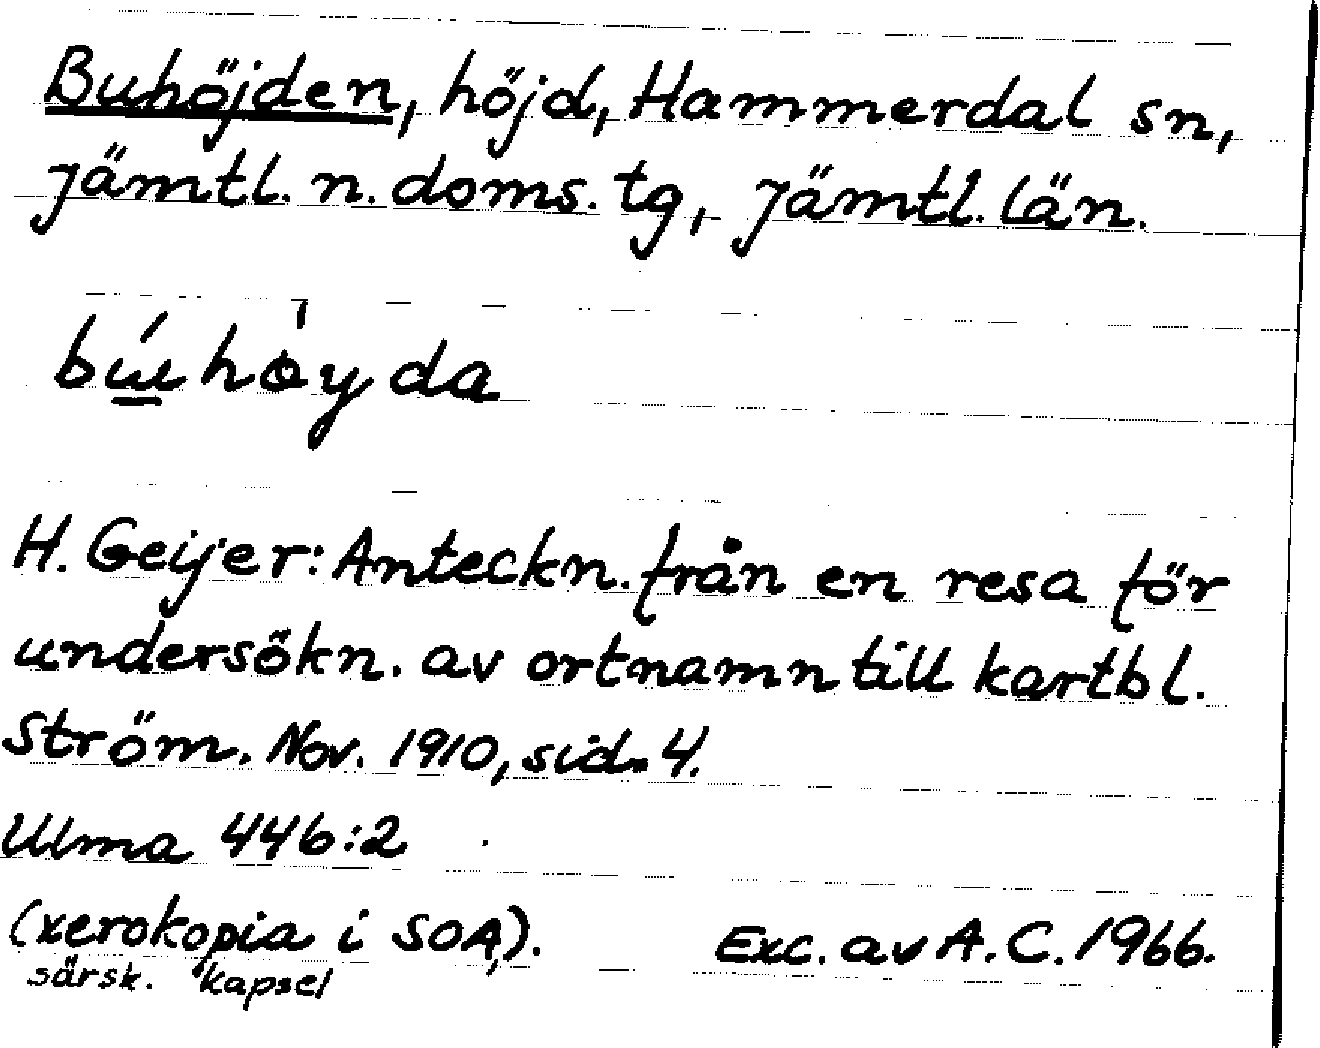 Buhöjden, höjd, Hammerdal sn,
Jämtl. n. doms. tg, Jämtl. län.
búhȯyda
H. Geijer: Anteckn. från en resa för
undersökn. av ortnamn till kartbl.
Ström. Nov. 1910, sid. 4.
Ulma 446:2
(xerokopia i SOA,). Exc. av A.C. 1966.
särsk. kapsel